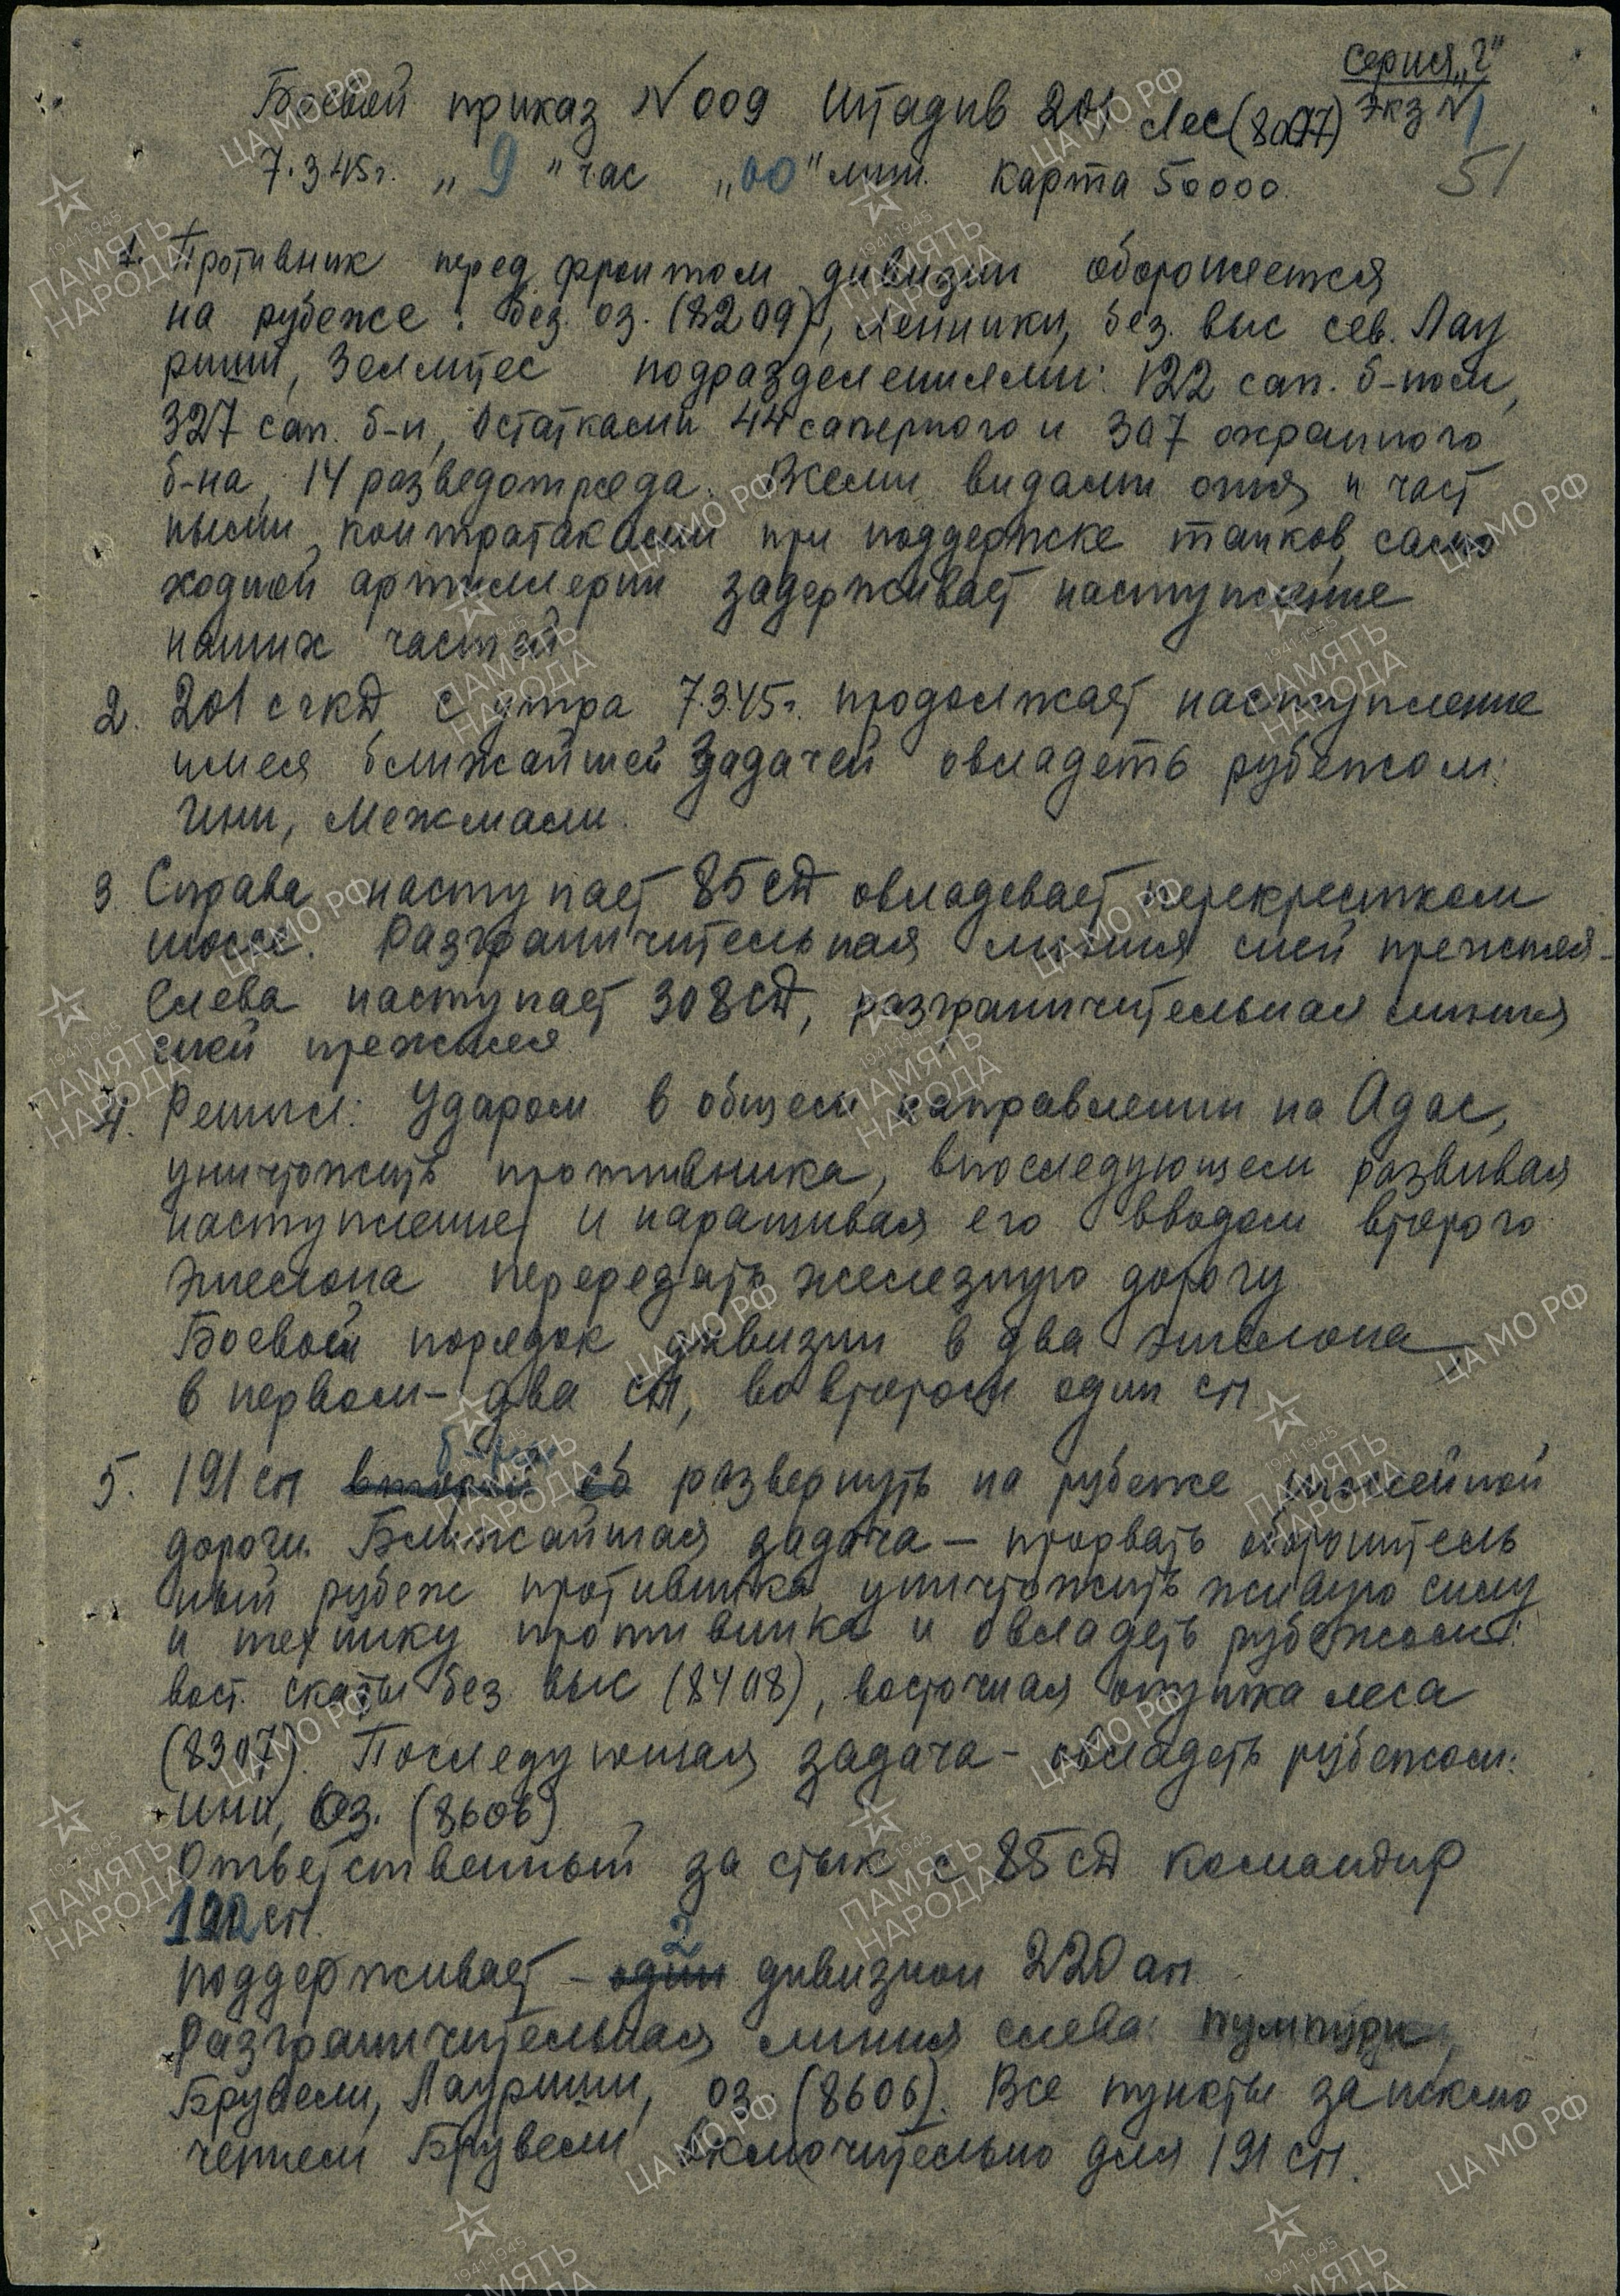 Серия „Г"
Боевой приказ №009 Штадив 201 Лес (8077) Экз №1
7.3.45г. „9" час „00" мин. Карта 50000.
51
1. Противник перед фронтом дивизии обороняется
на рубеже: без. оз. (8209), Ленники, без. выс сев. Лау
риши, Земмпес подразделениями: 122 сап. б-ном,
327 сап. б-н, остатками 44 саперного и 307 охранного
б-на, 14 разведотряда. Всеми видами огня и част
ными контратаками при поддержке танков, само
ходной артиллерии задерживает наступление
наших частей
2. 201 сгкД с утра 7.3.45г. продолжает наступление
имея ближайшей задачей овладеть рубежом:
Ини, Межмали.
3 Справа наступает 85 сД овладевает перекрестком
шоссе. Разграничительная линия с ней прежняя-
Слева наступает 308 сД, разграничительная линия
с ней прежняя
4. Решил: Ударом в общем направлении на Адас,
уничтожить противника, впоследующем развивая
наступление и наращивая его вводом второго
эшелона перерезать железную дорогу
Боевой порядок дивизии в два эшелона
в первом- два сп, во втором один сп
5. 191 сп второй сб развернуть на рубеже шоссейной
дороги. Ближайшая задача - прорвать оборонитель
ный рубеж противника, уничтожить живую силу
и технику противника и овладеть рубежом:
вост. скаты без выс (8408), восточная опушка леса
(8307). Последующая задача - овладеть рубежом:
Ини, Оз. (8606)
Ответственный за стык с 85 сД командир
191 сп.
2
поддерживает - один дивизион 220 ап.
Разграничительная линия слева: Пумпури,
Брувели, Лауриши, оз. (8606). Все пункты за исклю
чением Брувели включительно для 191 сп.
ЦА МО РФ
ПАМЯТЬ НАРОДА
1941-1945